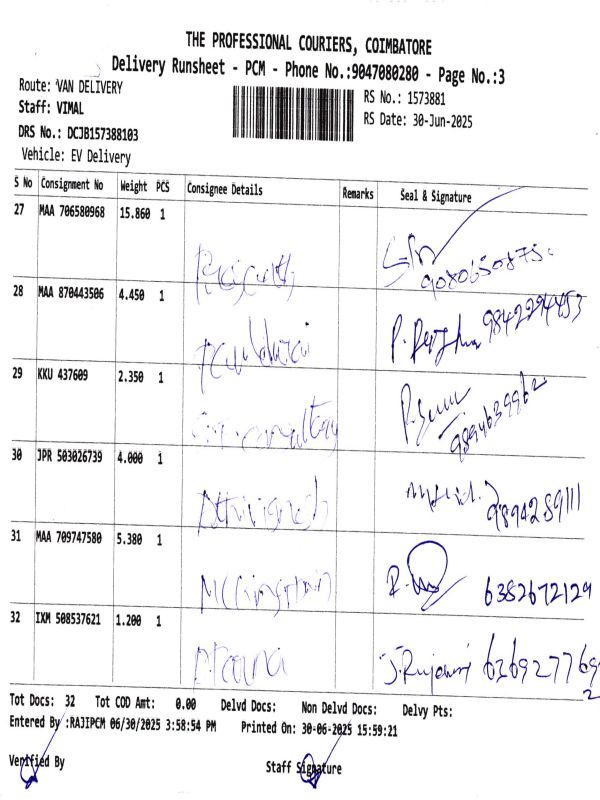 THE PROFESSIONAL COURIERS, COIMBATORE
Delivery Runsheet - PCM - Phone No.:9047080280 - Page No.:3
Route: VAN DELIVERY
Staff: VIMAL
DRS No.: DCJB157388103
Vehicle: EV Delivery
RS No.: 1573881
RS Date: 30-Jun-2025
S No Consignment No Weight PCS Consignee Details Remarks Seal & Signature
27 MAA 706580968 15.860 1
9080650875
28 MAA 870443506 4.450 1 9842294453
29 KKU 437609 2.350 1
9894639962
30 JPR 503026739 4.000 1 9894289111
31 MAA 709747580 5.380 1 6382672129
32 IXM 508537621 1.200 1 636927769
2
Tot Docs: 32 Tot COD Amt: 0.00 Delvd Docs: Non Delvd Docs: Delvy Pts:
Entered By :RAJIPCM 06/30/2025 3:58:54 PM Printed On: 30-06-2025 15:59:21
Verified By Staff Signature